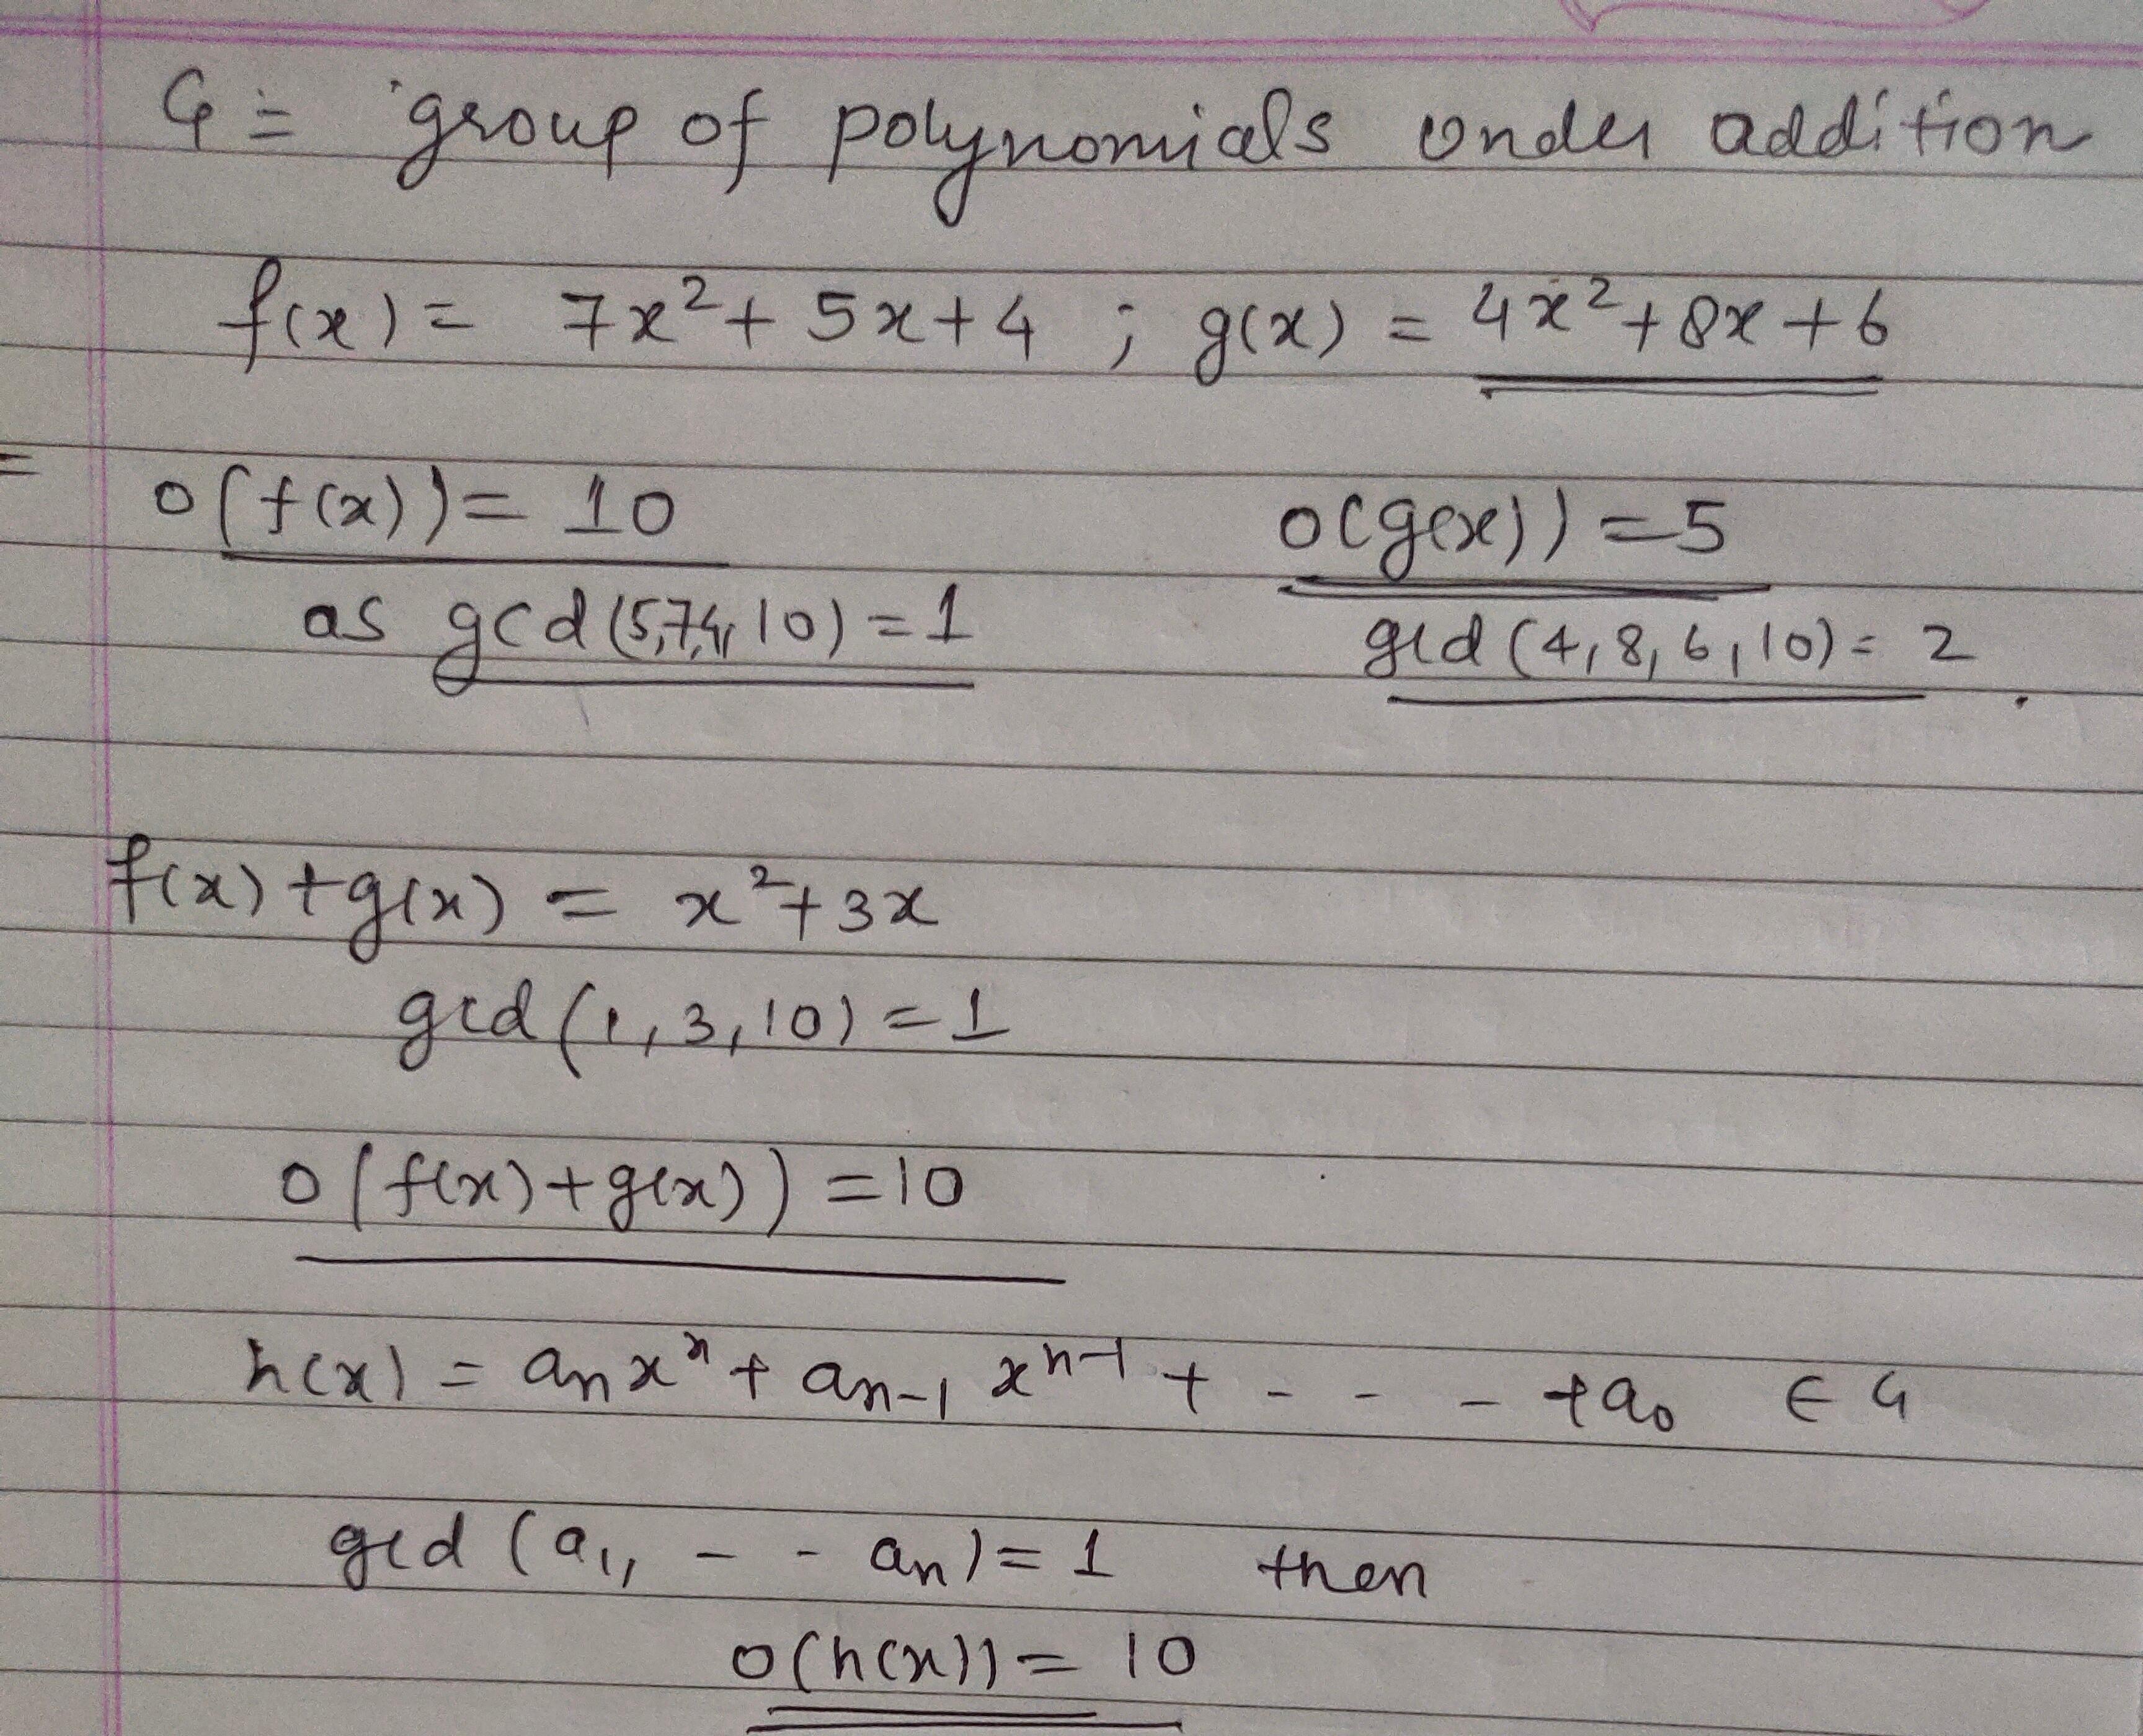 G = group of polynomials under addition
f(x) = 7x² + 5x + 4 ; g(x) = 4x² + 8x + 6
= o(f(x)) = 10 o(g(x)) = 5
as gcd (5,7,4, 10) = 1 gcd (4, 8, 6, 10) = 2 .
f(x) + g(x) = x² + 3x
gcd (1, 3, 10) = 1
o(f(x) + g(x)) = 10
h(x) = aₙxⁿ + aₙ₋₁ xⁿ⁻¹ + - - - + a₀ ∈ G
gcd (a₁, - - aₙ) = 1 then
o(h(x)) = 10